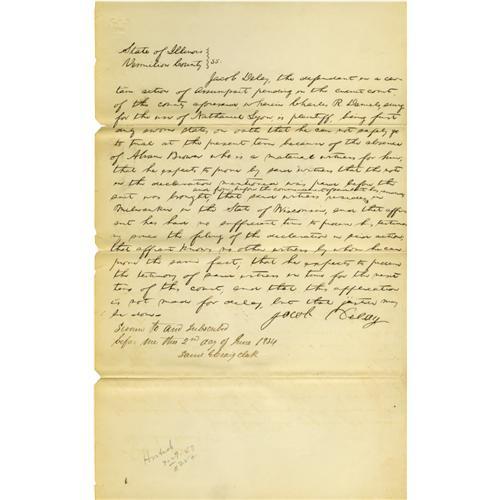 State of Illinois
Vermilion County } ss.
Jacob Delay, the defendant in a cer
tain action of assumpsit pending in the circuit court
of the county aforesaid wherein Charles R Daniels suing
for the use of Nathaniel Lyon is plaintiff, being first
duly sworn states, on oath that he can not safely go
to trial at the present term because of the absence
of Abram Brown who is a material witness for him,
that he expects to prove by said witness that the note
in the declaration mentioned was paid before the
and long before the commencement of
suit was brought, that said witness resides in
Milwaukee in the State of Wisconsin, and that affi
ant has had no sufficient time to procure his testimo
ny since the filing of the declaration in said action,
that affiant knows no other witness by whom he can
prove the same fact, that he expects to procure
the testimony of said witness in time for the next
term of this court, and that this application
is not made for delay, but that justice may
be done.
Jacob Delay
Sworn to and subscribed
before me this 2nd day of June 1854
Saml Craig clerk